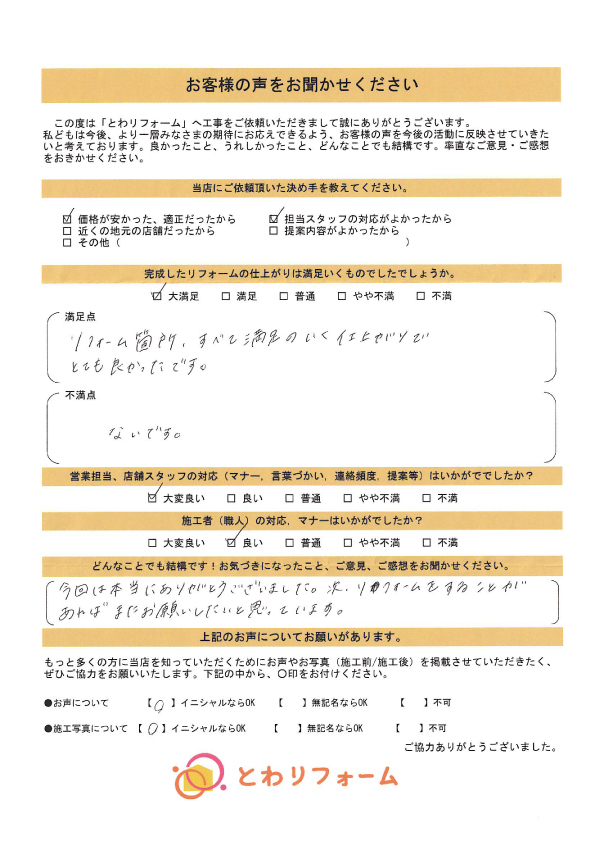 お客様の声をお聞かせください
この度は「とわリフォーム」へ工事をご依頼いただきまして誠にありがとうございます。
私どもは今後、より一層みなさまの期待にお応えできるよう、お客様の声を今後の活動に反映させていきた
いと考えております。良かったこと、うれしかったこと、どんなことでも結構です。率直なご意見・ご感想
をおきかせください。
当店にご依頼頂いた決め手を教えてください。
☑ 価格が安かった、適正だったから ☑ 担当スタッフの対応がよかったから
□ 近くの地元の店舗だったから □ 提案内容がよかったから
□ その他（ ）
完成したリフォームの仕上がりは満足いくものでしたでしょうか。
☑ 大満足 □ 満足 □ 普通 □ やや不満 □ 不満
満足点
リフォーム箇所、すべて満足のいく仕上がりで
とても良かったです。
不満点
ないです。
営業担当、店舗スタッフの対応（マナー，言葉づかい，連絡頻度，提案等）はいかがででしたか？
☑ 大変良い □ 良い □ 普通 □ やや不満 □ 不満
施工者（職人）の対応，マナーはいかがでしたか？
□ 大変良い ☑ 良い □ 普通 □ やや不満 □ 不満
どんなことでも結構です！お気づきになったこと、ご意見、ご感想をお聞かせください。
今回は本当にありがとうございました。次、リフォームをすることが
あればまたお願いしたいと思っています。
上記のお声についてお願いがあります。
もっと多くの方に当店を知っていただくためにお声やお写真（施工前/施工後）を掲載させていただきたく、
ぜひご協力をお願いいたします。下記の中から、〇印をお付けください。
●お声について 【○】イニシャルならOK 【 】無記名ならOK 【 】不可
●施工写真について 【○】イニシャルならOK 【 】無記名ならOK 【 】不可
ご協力ありがとうございました。
とわリフォーム